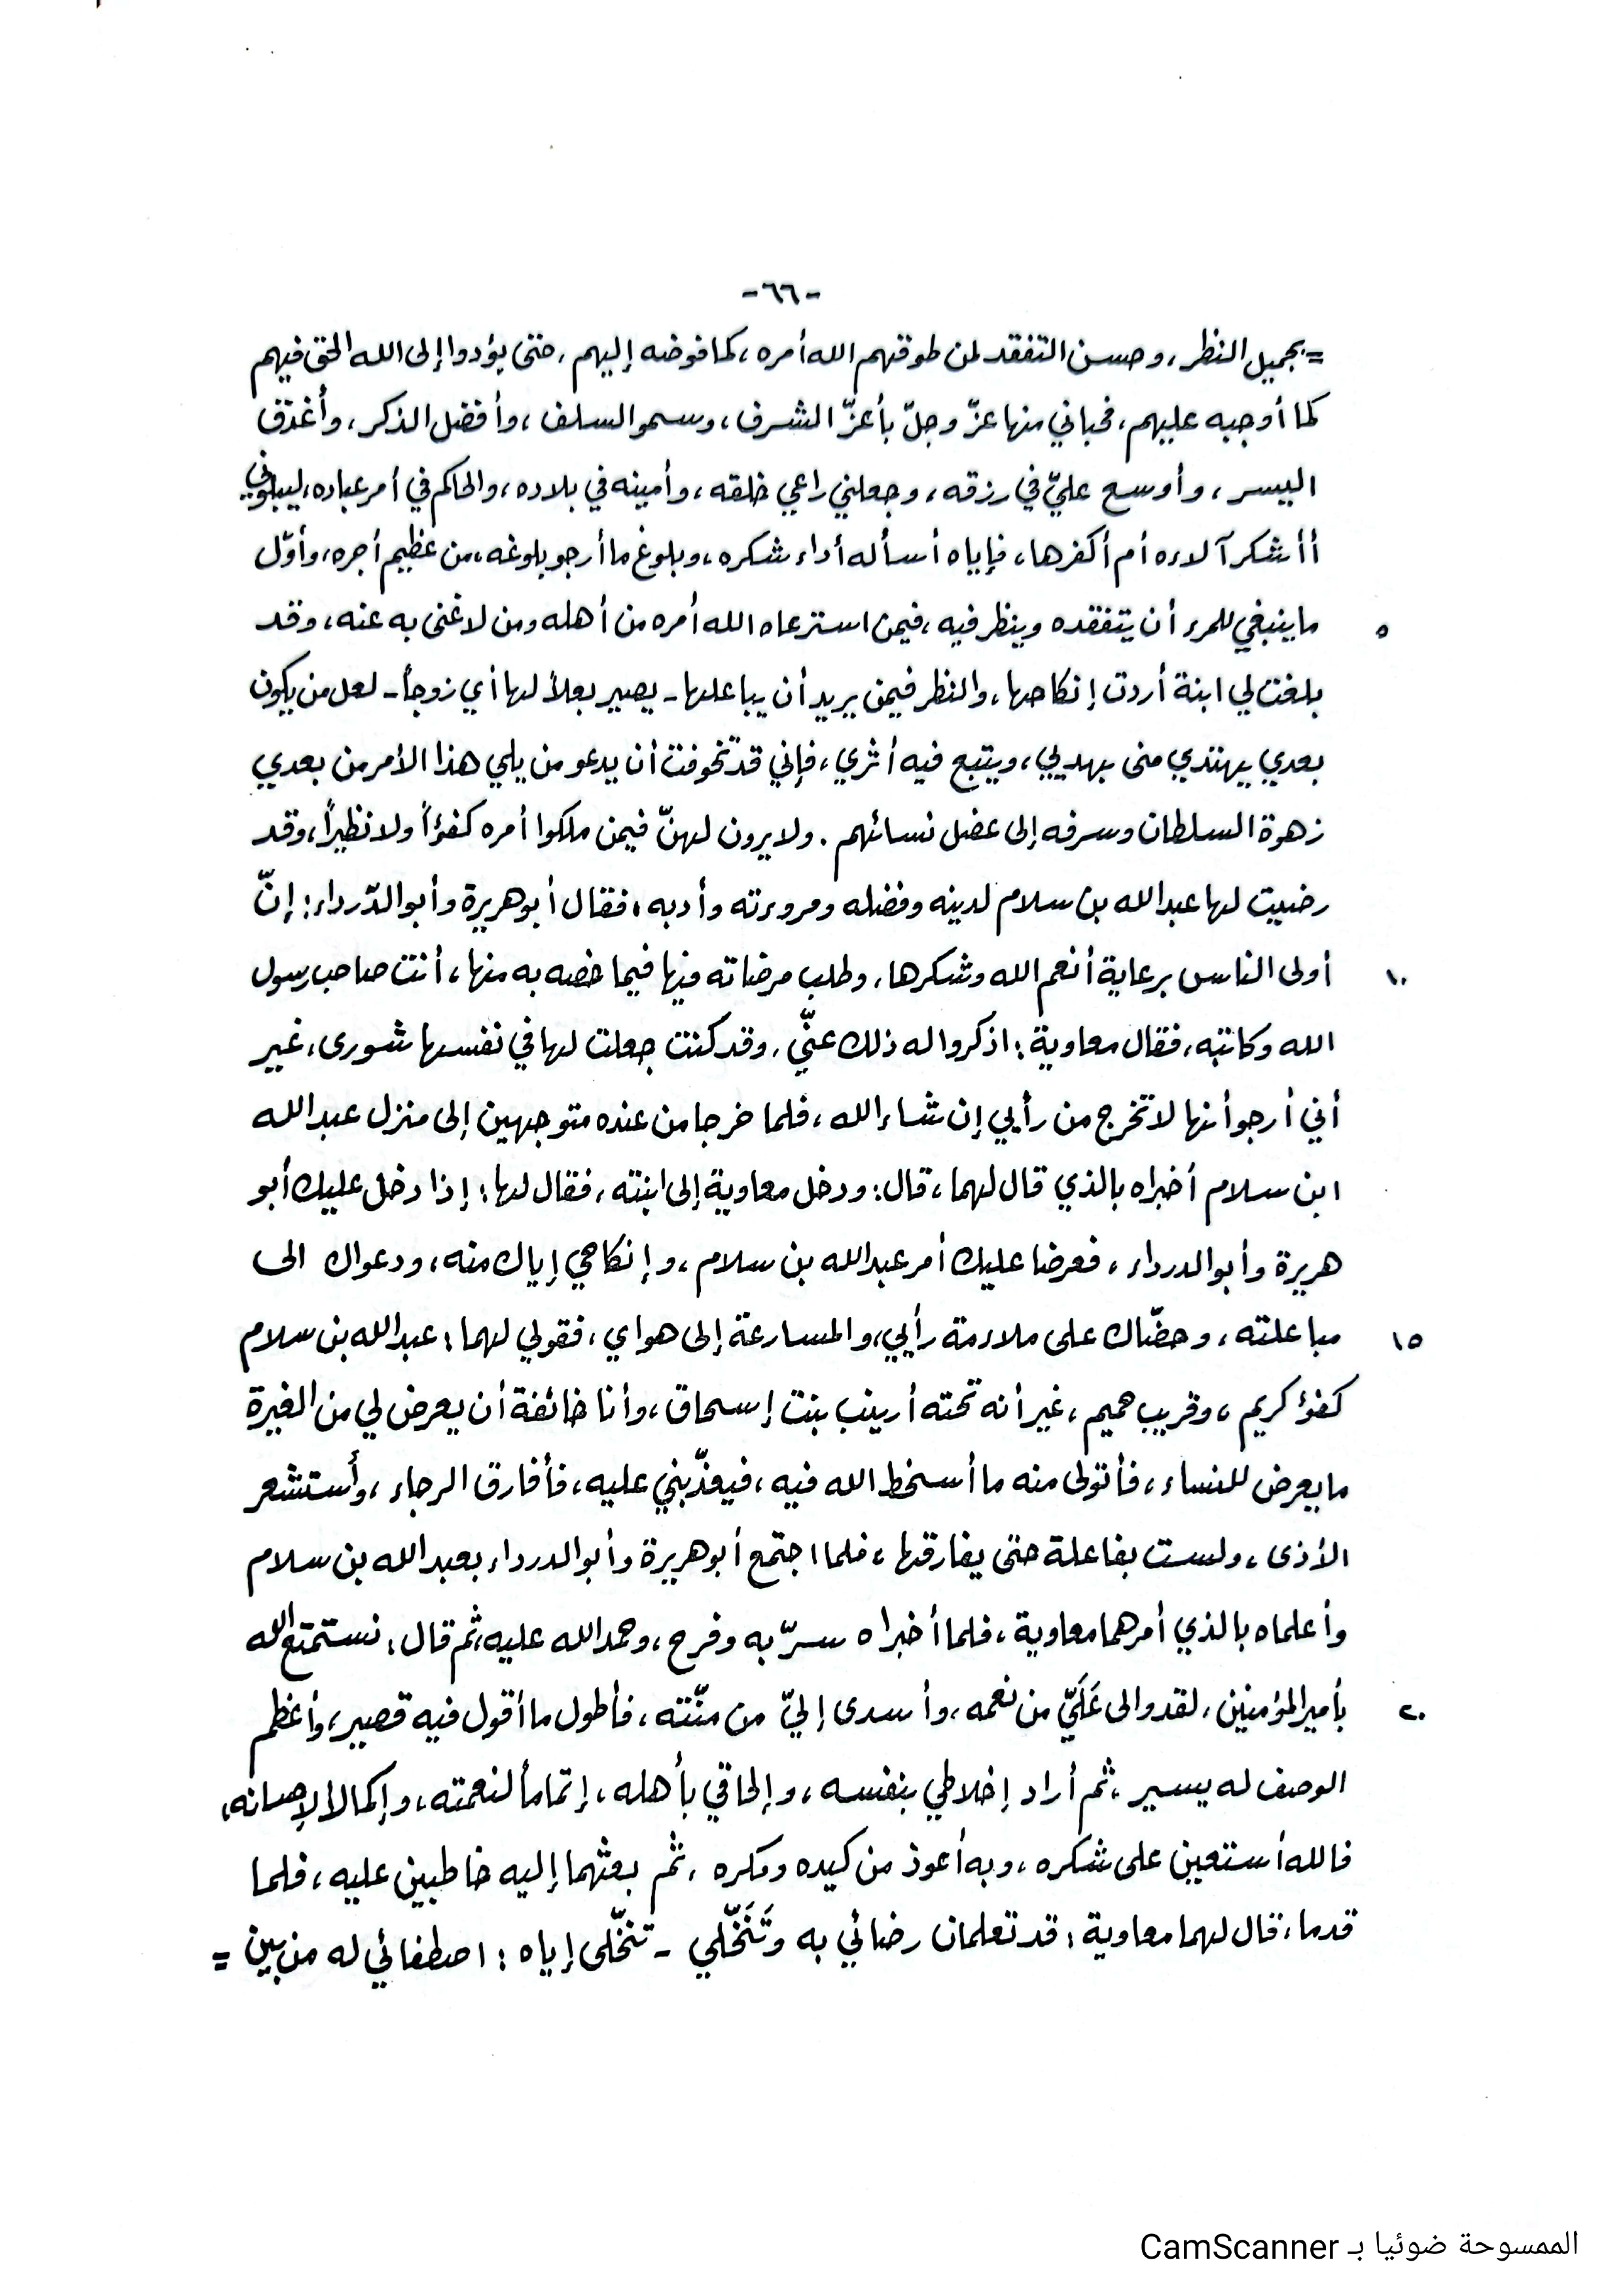 -٦٦-
= بجميل النظر، وحسن التفقد لمن طوقهم الله أمره، كما فوضه إليهم، حتى يؤدوا إلى الله الحق فيهم
كما أوجبه عليهم، فحباني منها عزّ وجلّ بأعزّ الشرف، وسمو السلف، وأفضل الذكر، وأغدق
اليسر، وأوسع عليّ في رزقه، وجعلني راعي خلقه، وأمينه في بلاده، والحاكم في أمر عباده، ليبلوني
أأشكر آلاءه أم أكفرها، فإياه أسأله أداء شكره، وبلوغ ما أرجو بلوغه، من عظيم أجره، وأوّل
٥ ما ينبغي للمرء أن يتفقده وينظر فيه، فيمن استرعاه الله أمره من أهله ومن لا غنى به عنه، وقد
بلغت لي ابنة أردت إنكاحها، والنظر فيمن يريد أن يباعلها - يصير بعلاً لها أي زوجاً - لعل من يكون
بعدي يهتدي منى بهديي، ويتبع فيه أثري، فإني قد تخوفت أن يدعو من يلي هذا الأمر من بعدي
زهوة السلطان وسرفه إلى عضل نسائهم. ولا يرون لهنّ فيمن ملكوا أمره كفؤاً ولا نظيراً، وقد
رضيت لها عبد الله بن سلام لدينه وفضله ومروءته وأدبه، فقال أبو هريرة وأبو الدّرداء: إنّ
١٠ أولى الناس برعاية أنعم الله وشكرها، وطلب مرضاته فيها فيما خصه به منها، أنت صاحب رسول
الله وكاتبه، فقال معاوية: اذكروا له ذلك عنّي، وقد كنت جعلت لها في نفسها شورى، غير
أني أرجو أنها لا تخرج من رأيي إن شاء الله، فلما خرجا من عنده متوجهين إلى منزل عبد الله
ابن سلام أخبراه بالذي قال لهما، قال: ودخل معاوية إلى ابنته، فقال لها: إذا دخل عليك أبو
هريرة وأبو الدرداء، فعرضا عليك أمر عبد الله بن سلام، وإنكاحي إياك منه، ودعواك الى
١٥ مباعلته، وحضّاك على ملاءمة رأيي، والمسارعة إلى هواي، فقولي لهما: عبد الله بن سلام
كفؤ كريم، وقريب حميم، غير أنه تحته أرينب بنت إسحاق، وأنا خائفة أن يعرض لي من الغيرة
ما يعرض للنساء، فأتولى منه ما أسخط الله فيه، فيعذّبني عليه، فأفارق الرجاء، وأستشعر
الأذى، ولست بفاعلة حتى يفارقها، فلما اجتمع أبو هريرة وأبو الدرداء بعبد الله بن سلام
وأعلماه بالذي أمرهما معاوية، فلما أخبراه سرّ به وفرح، وحمد الله عليه، ثم قال: نستمتع الله
٢٠ بأمير المؤمنين، لقد والى عَلَيّ من نعمه، وأسدى إليّ من منّته، فأطول ما أقول فيه قصير، وأعظم
الوصف له يسير، ثم أراد إخلاطي بنفسه، وإلحاقي بأهله، إتماماً لنعمته، وإكمالا لإحسانه،
فالله أستعين على شكره، وبه أعوذ من كيده ومكره، ثم بعثهما إليه خاطبين عليه، فلما
قدما، قال لهما معاوية: قد تعلمان رضائي به وتَنَخّلي - تنخّلى إياه: اصطفائي له من بين =
الممسوحة ضوئيا بـ CamScanner